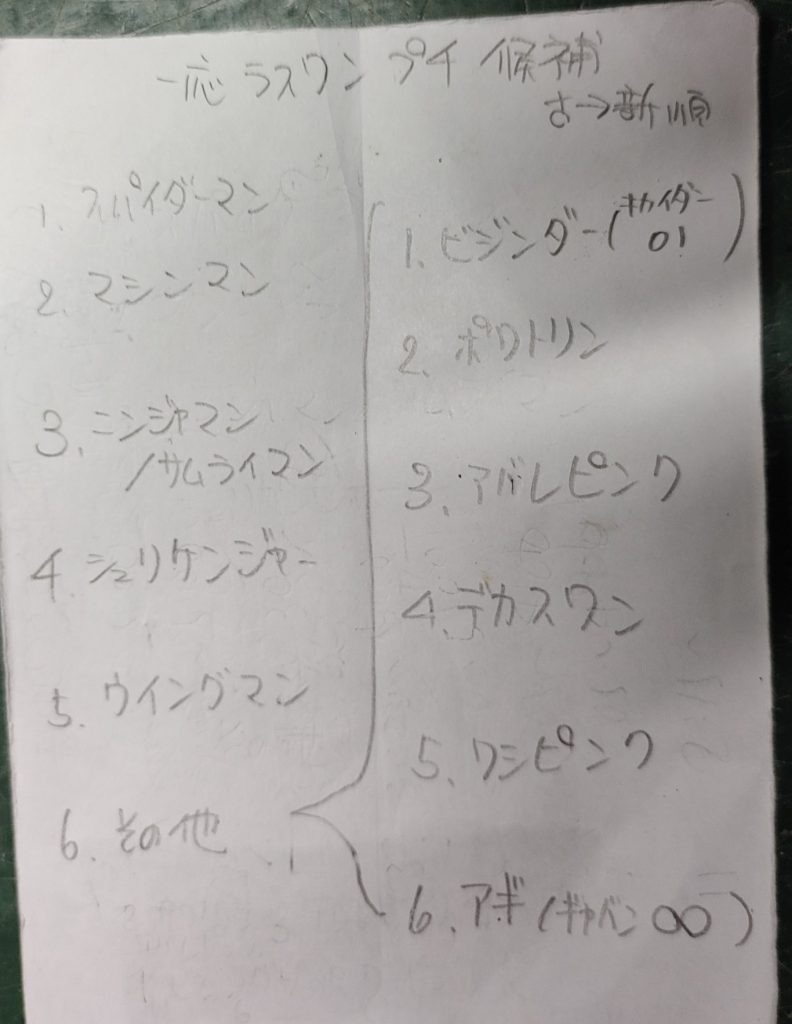 一応 ラスワン プチ 候補
古→新 順
1. スパイダーマン
2. マシンマン
3. ニンジャマン
/サムライマン
4. シュリケンジャー
5. ウイングマン
6. その他
1. ビジンダー(キカイダー01)
2. ポワトリン
3. アバレピンク
4. デカスワン
5. ワシピンク
6. アギ(ギャバン∞)